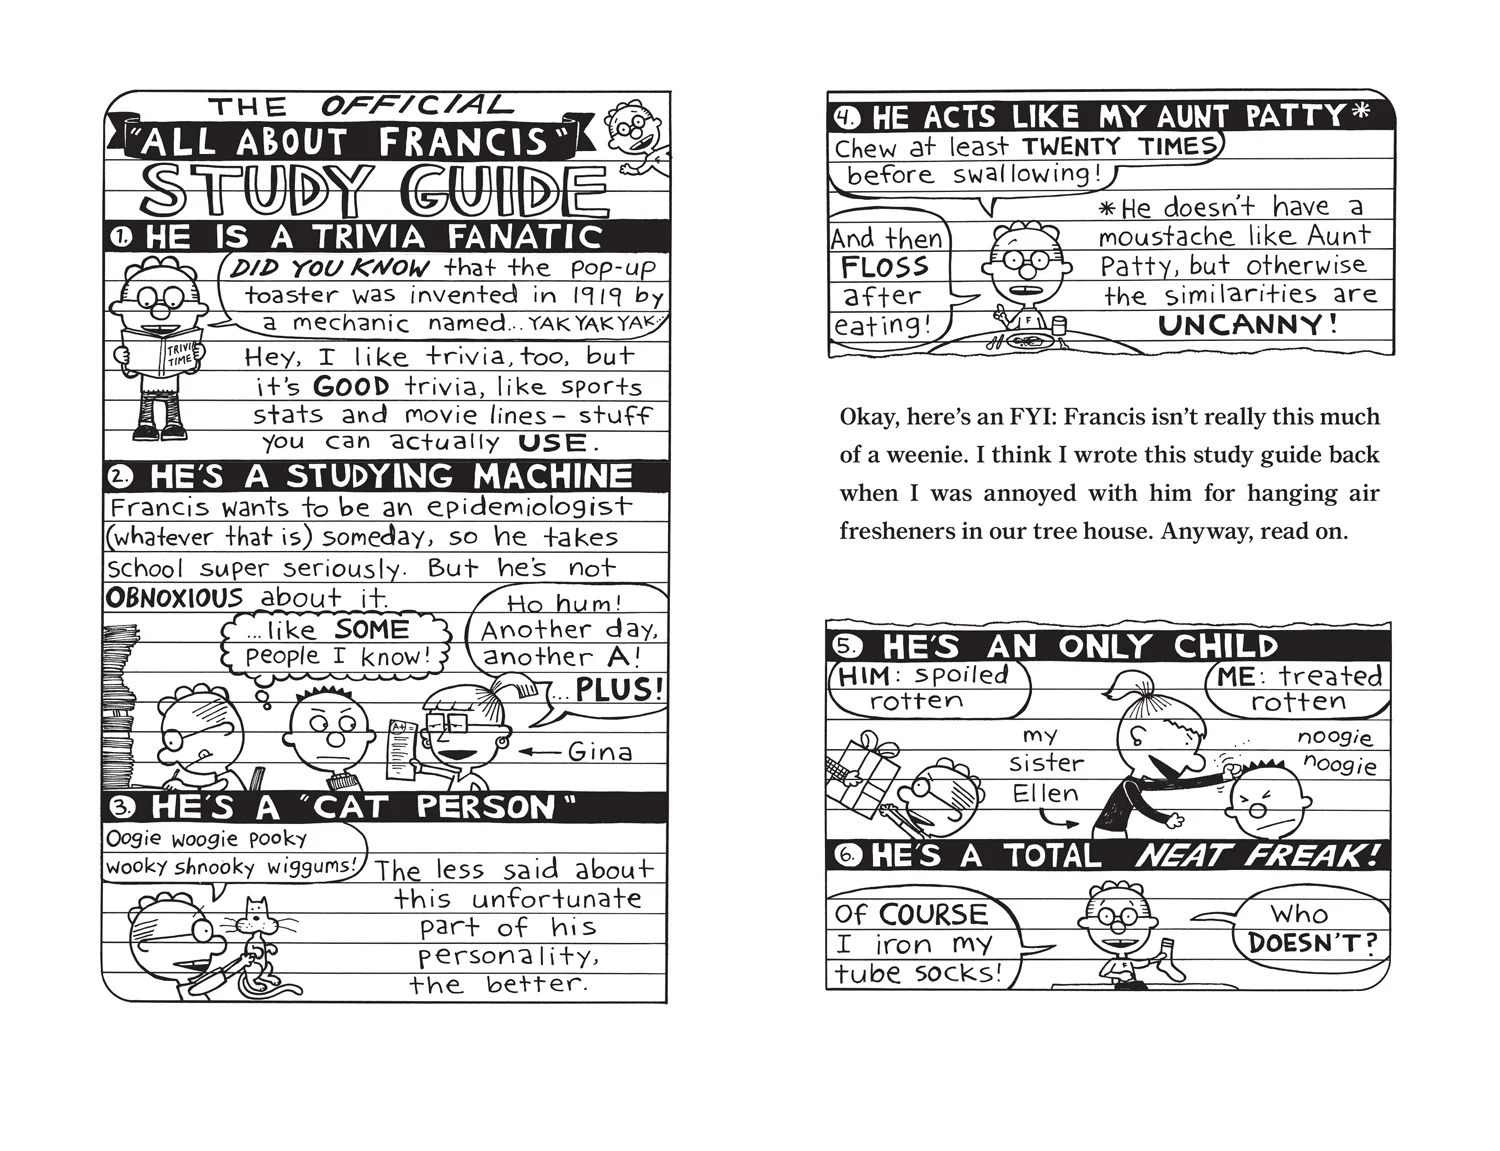 THE OFFICIAL
"ALL ABOUT FRANCIS"
STUDY GUIDE
1. HE IS A TRIVIA FANATIC
DID YOU KNOW that the pop-up
toaster was invented in 1919 by
a mechanic named... YAK YAK YAK..
TRIVIA
TIME
Hey, I like trivia, too, but
it's GOOD trivia, like sports
stats and movie lines – stuff
you can actually USE.
2. HE'S A STUDYING MACHINE
Francis wants to be an epidemiologist
(whatever that is) someday, so he takes
school super seriously. But he's not
OBNOXIOUS about it.
...like SOME
people I know!
Ho hum!
Another day,
another A!
... PLUS!
A+
Gina
3. HE'S A "CAT PERSON"
Oogie woogie pooky
wooky shnooky wiggums!
The less said about
this unfortunate
part of his
personality,
the better.
4. HE ACTS LIKE MY AUNT PATTY*
Chew at least TWENTY TIMES
before swallowing!
And then
FLOSS
after
eating!
F
*He doesn't have a
moustache like Aunt
Patty, but otherwise
the similarities are
UNCANNY!
Okay, here's an FYI: Francis isn't really this much
of a weenie. I think I wrote this study guide back
when I was annoyed with him for hanging air
fresheners in our tree house. Anyway, read on.
5. HE'S AN ONLY CHILD
HIM: spoiled
rotten
ME: treated
rotten
my
sister
Ellen
noogie
noogie
6. HE'S A TOTAL NEAT FREAK!
Of COURSE
I iron my
tube socks!
F
Who
DOESN'T?